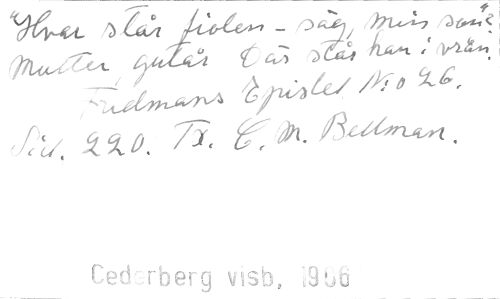 "Hvar står fiolen - säg, min son"?
Mutter, gutår Där står han i vrån.
Fredmans Epistel N:o 26.
Sid. 220. Tx. C. M. Bellman.
Cederberg visb, 1906